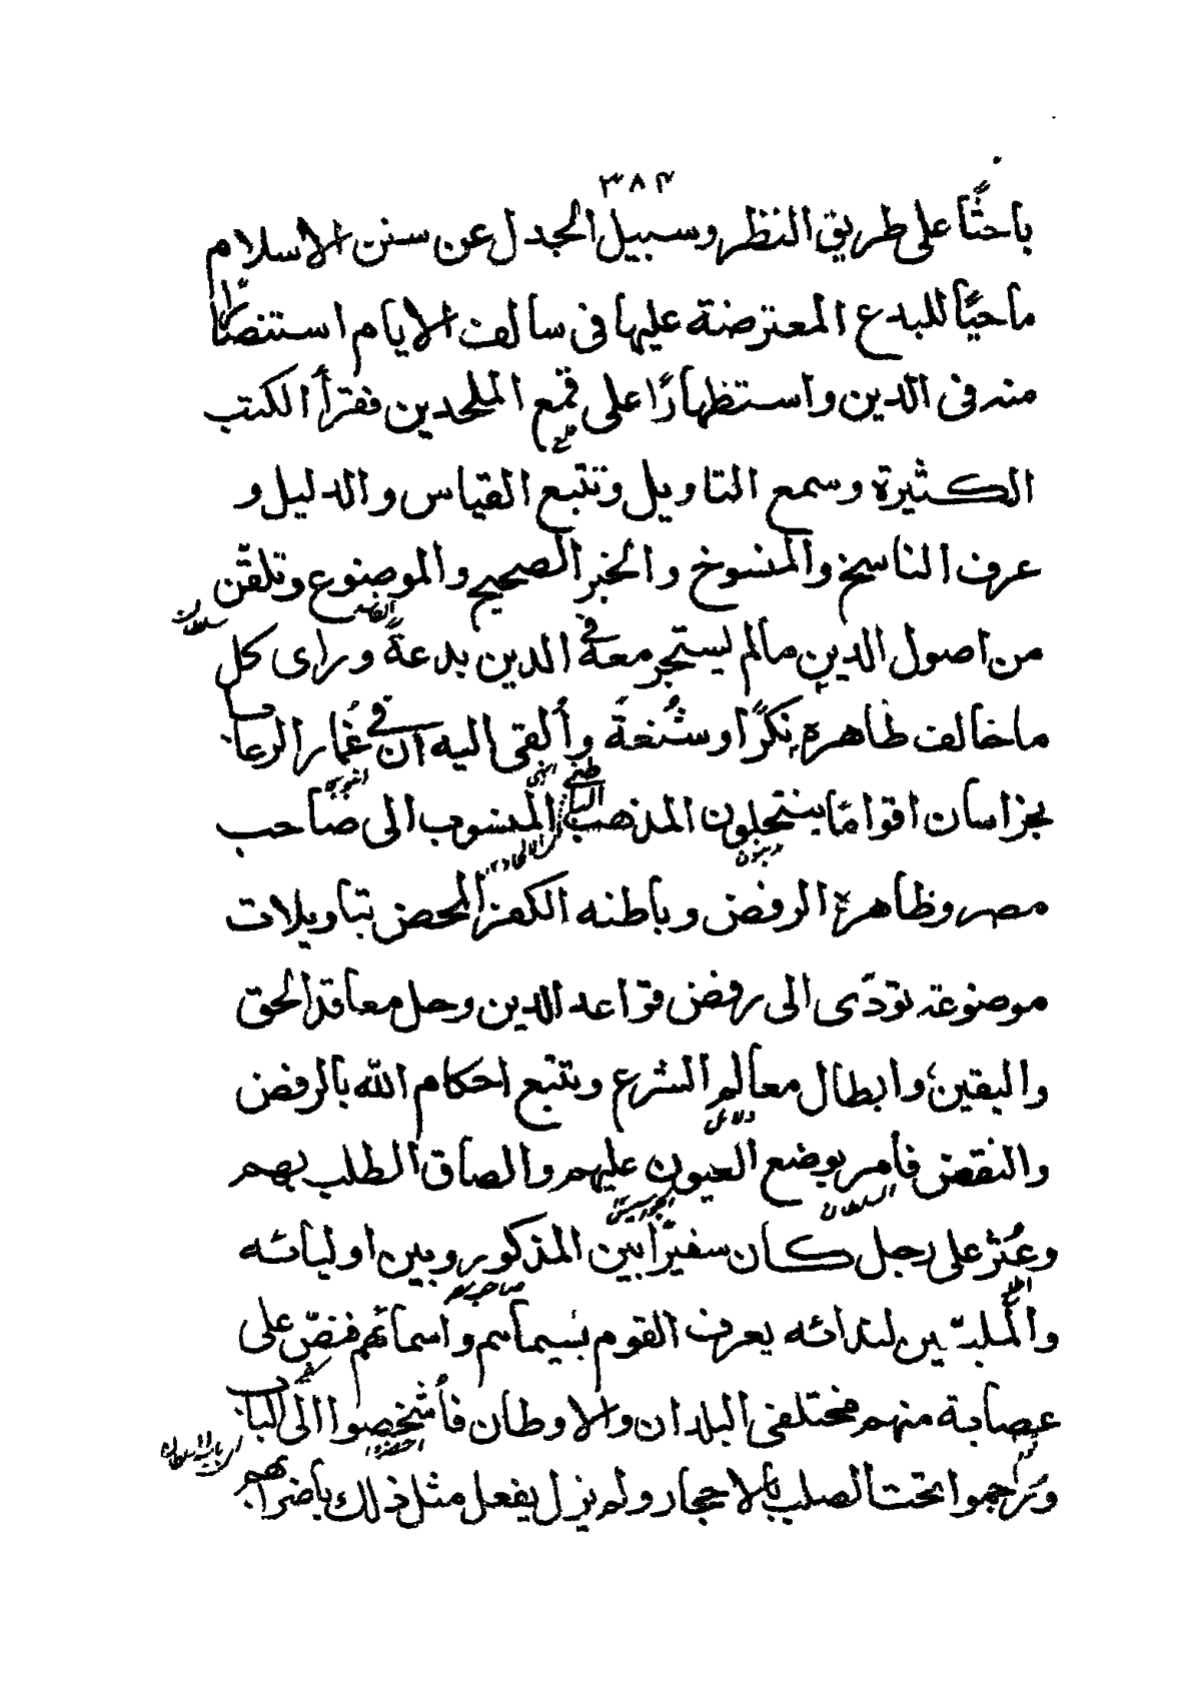 ٣٨٤
باحثًا على طريق النظر وسبيل الجدل عن سنن الاسلام
ماحيًا للبدع المعترضة عليها فى سالف الايام استنصارًا
منه فى الدين واستظهارًا على قمع الملحدين فقرأ الكتب
الكثيرة وسمع التاويل وتتبع القياس والدليل و
عرف الناسخ والمنسوخ والخبر الصحيح والموضوع وتلقّن
سلطان
من اصول الدين مالم يستجز معه فى الدين بدعةً وراى كل
ما خالف ظاهره نكرًا وشنعةً وألقى اليه ان فى غمار الرعايا
بخراسان اقوامًا ينتحلون المذهب الباطنى المنسوب الى صاحب
مصر وظاهره الرفض وباطنه الكفر المحض بتاويلات
موضوعة تودّى الى رفض قواعد الدين وحل معاقد الحق
واليقين وابطال معالم الشرع وتتبع احكام الله بالرفض
دلائل
والنقض فأمر بوضع العيون عليهم والصاق الطلب بهم
السلطان
وعُثر على رجل كان سفيرًا بين المذكور وبين اوليائه
صاحب مصر
والملبّين لندائه يعرف القوم بسيماهم واسمائهم فنصّ على
عصابة منهم مختلفى البلدان والاوطان فأُشخصوا الى الباب
احضروا
ورجموا تحت الصلب بالاحجار ولم يزل يفعل مثل ذلك باضرابهم